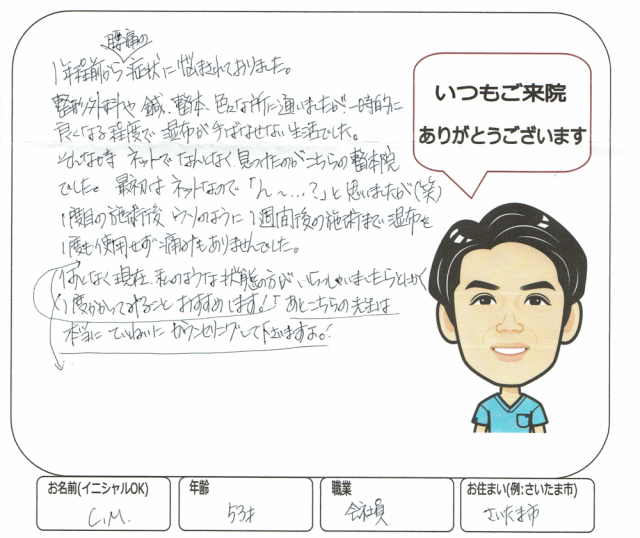 腰痛の
1年程前から症状に悩まされておりました。
整形外科や鍼、整体、色々な所に通いましたが、一時的に
良くなる程度で湿布が手ばなせない生活でした。
そんな時ネットでなんとなく見つけたのがこちらの整体院
でした。最初はネットなので「ん〜…?」と思いましたが(笑)
1度目の施術後ウソのように1週間後の施術まで湿布を
1度も使用せず痛みもありませんでした。
なんとなく現在、私のような状態の方がいらっしゃいましたらとにかく
1度行かしてみることおすすめします!」あとこちらの先生は
本当にていねいにカウンセリングして下さいますよ。!
いつもご来院
ありがとうございます
お名前(イニシャルOK)
C.M.
年齢
53才
職業
会社員
お住まい(例:さいたま市)
さいたま市